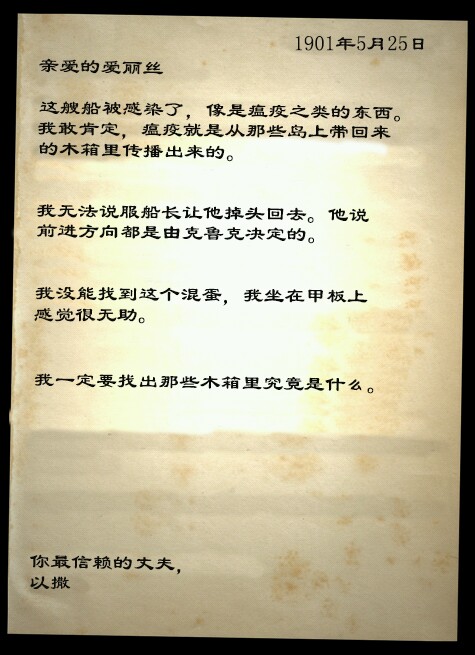 1901年5月25日
亲爱的爱丽丝
这艘船被感染了，像是瘟疫之类的东西。
我敢肯定，瘟疫就是从那些岛上带回来
的木箱里传播出来的。
我无法说服船长让他掉头回去。他说
前进方向都是由克鲁克决定的。
我没能找到这个混蛋，我坐在甲板上
感觉很无助。
我一定要找出那些木箱里究竟是什么。
你最信赖的丈夫，
以撒